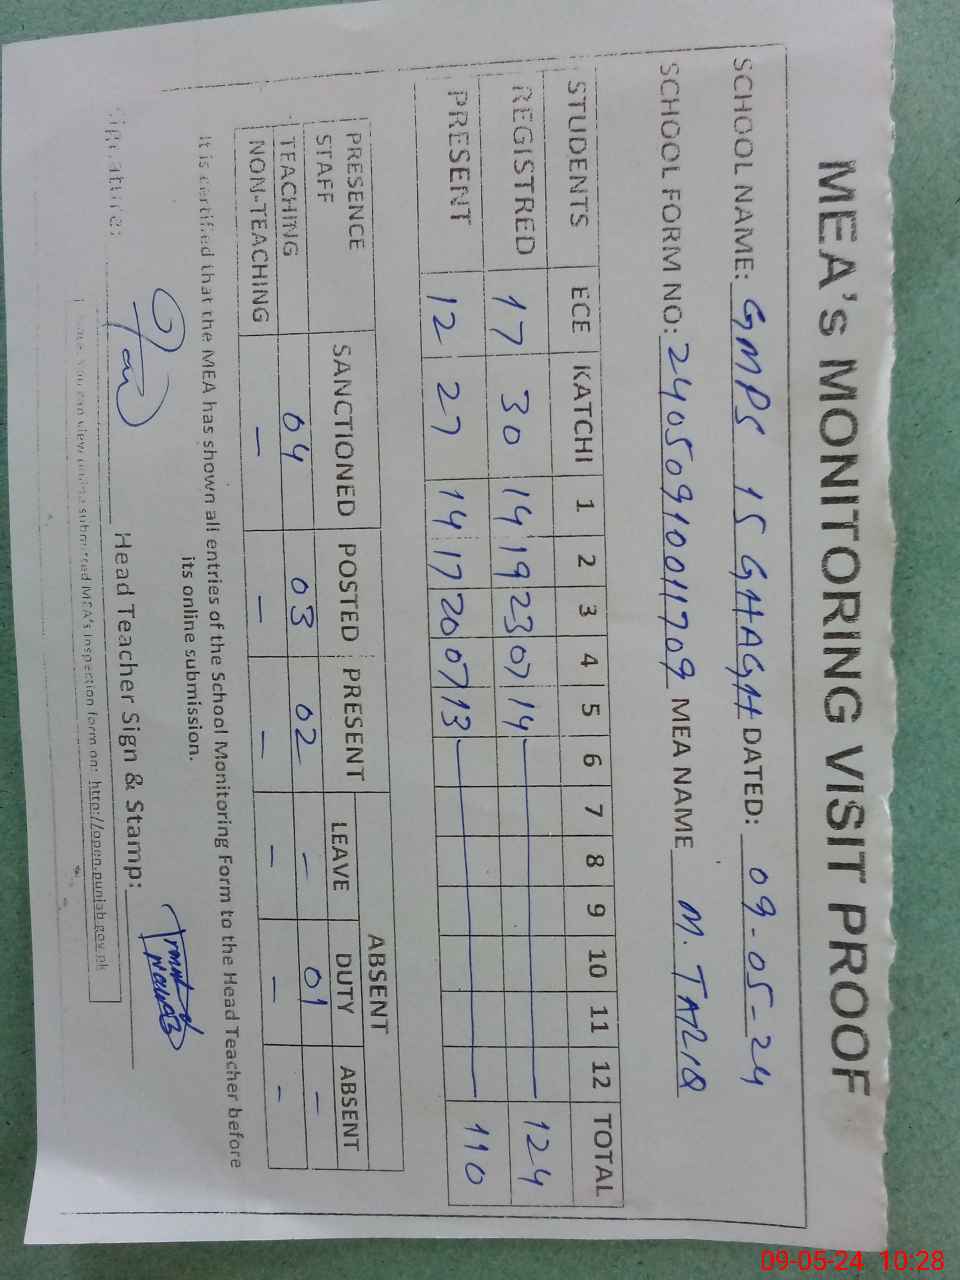 MEA's MONITORING VISIT PROOF
SCHOOL NAME: GMPS 15 GHAGH DATED: 09-05-24
SCHOOL FORM NO: 24050910011709 MEA NAME M. TARIQ
STUDENTS ECE KATCHI 1 2 3 4 5 6 7 8 9 10 11 12 TOTAL
REGISTRED 17 30 14 19 23 07 14 124
PRESENT 12 27 14 17 20 07 13 110
PRESENCE STAFF SANCTIONED POSTED PRESENT ABSENT
LEAVE DUTY ABSENT
TEACHING 04 03 02 - 01 -
NON-TEACHING - - - - - -
It is certified that the MEA has shown all entries of the School Monitoring Form to the Head Teacher before
its online submission.
Signature: Head Teacher Sign & Stamp: Nawaz
you can view online submitted MEA's inspection form on: http://open.punjab.gov.pk
09-05-24 10:28